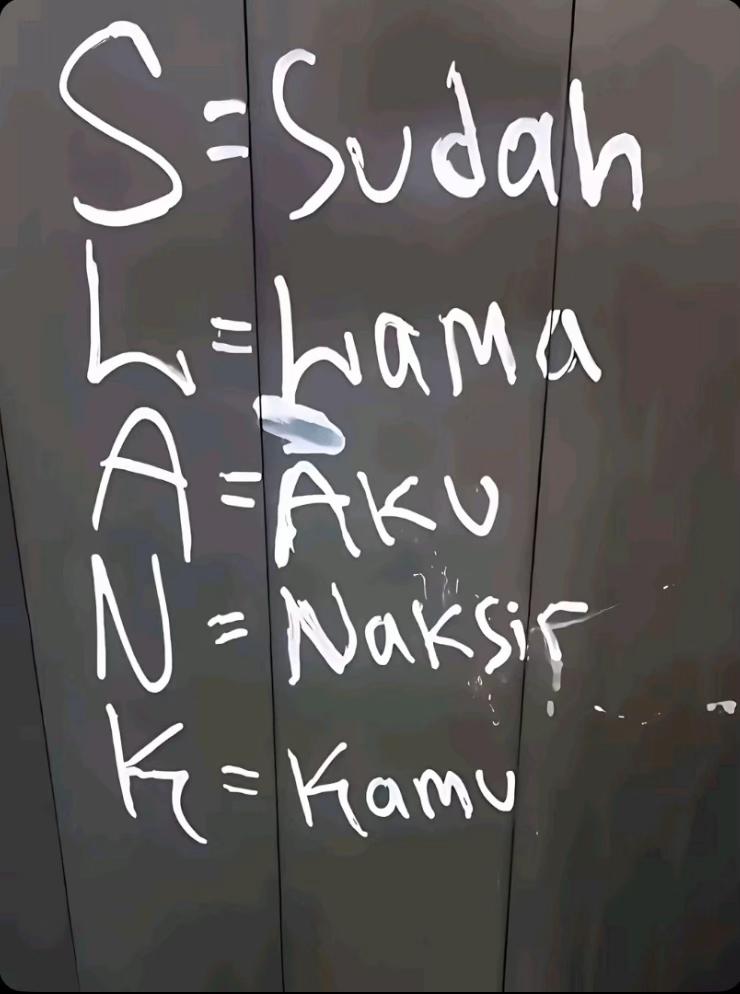 S = Sudah
L = Lama
A = Aku
N = Naksir
K = Kamu